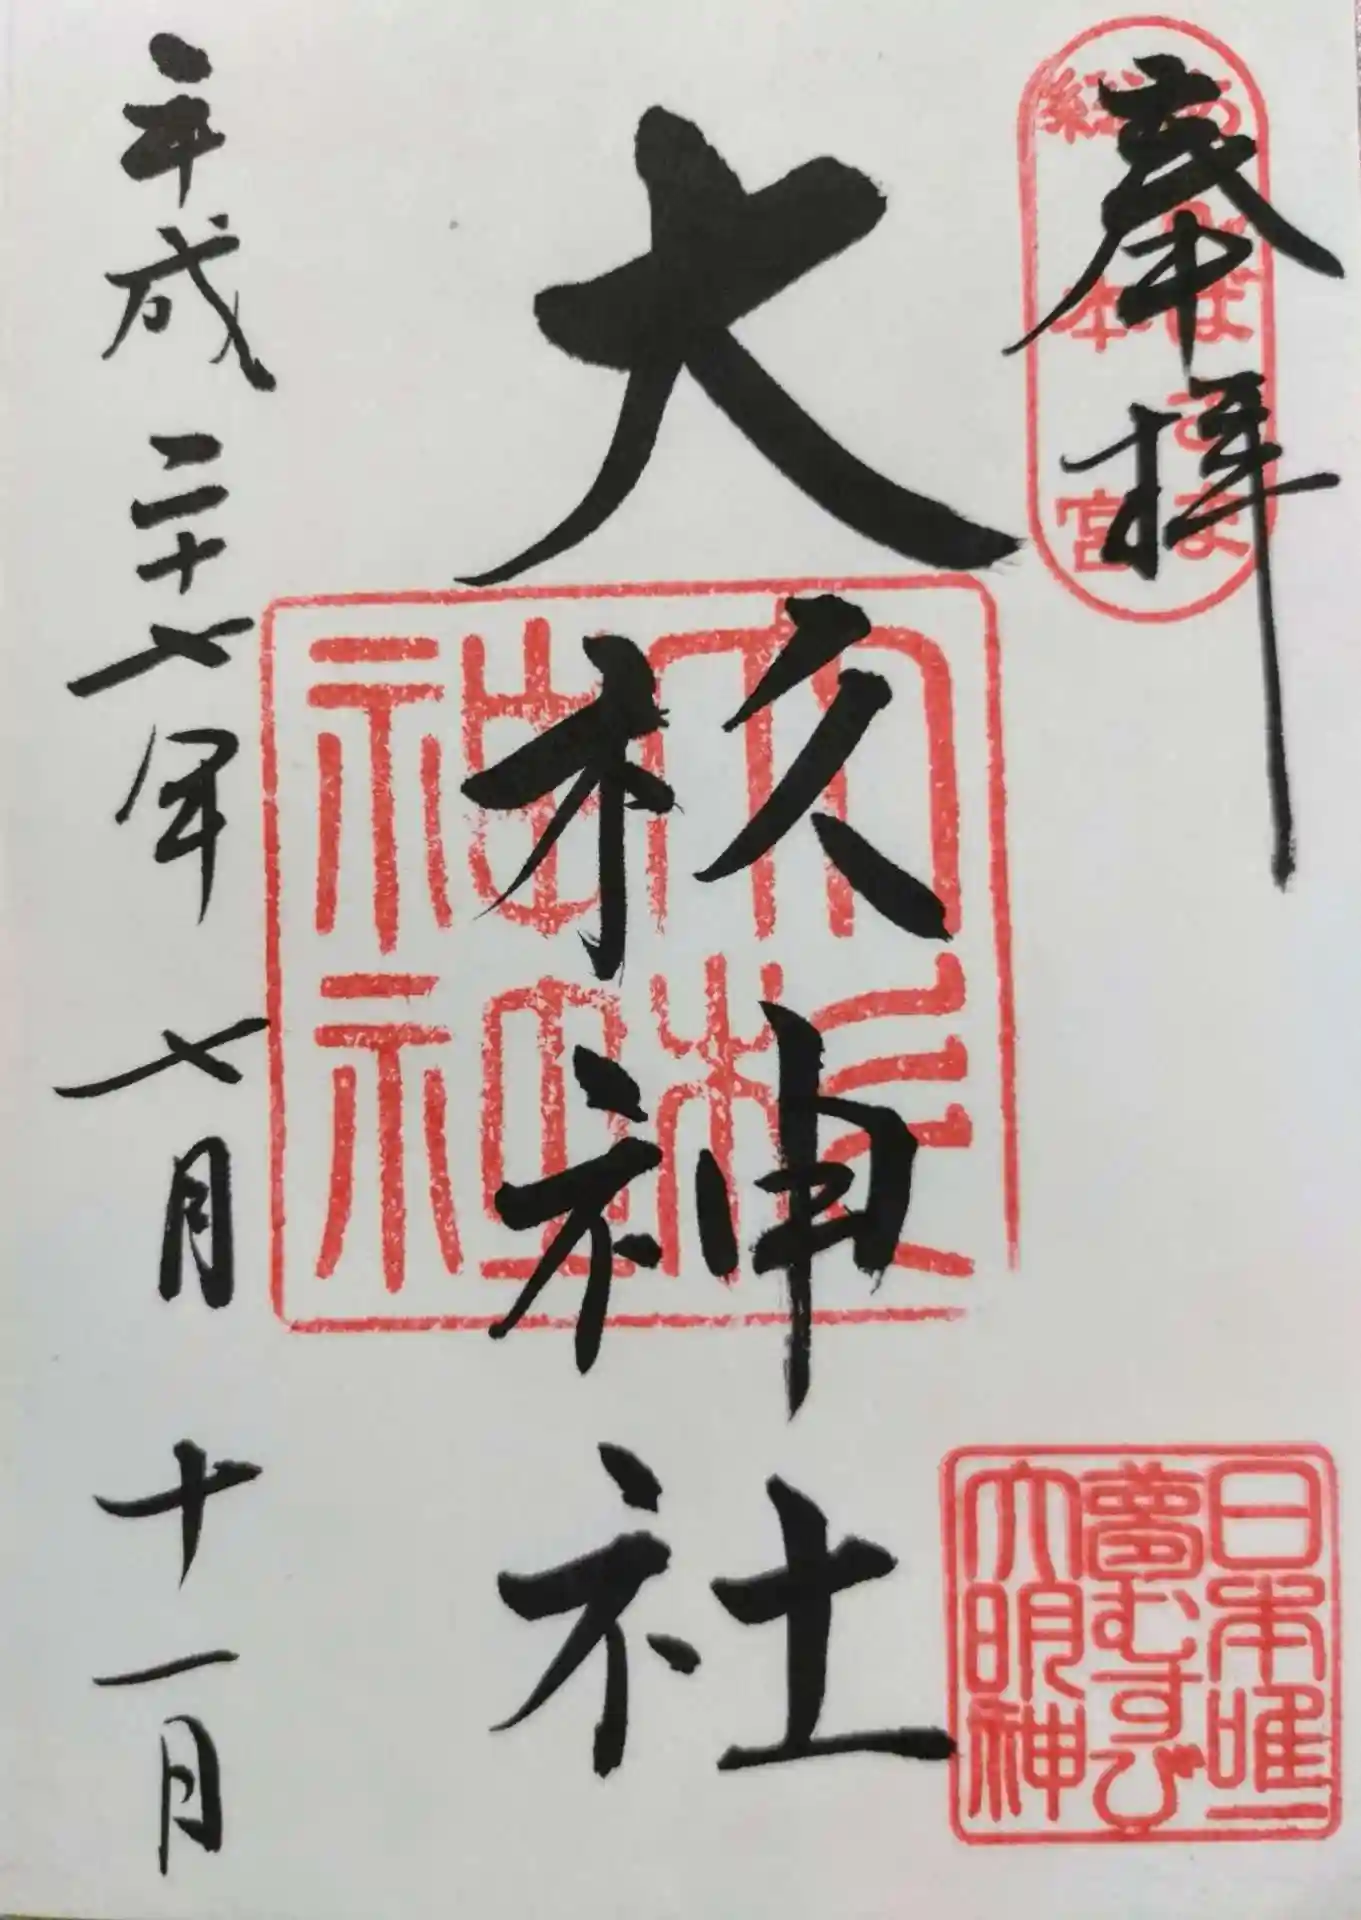 奉拝
あんばさま
総本宮
日本唯一
夢むすび
大明神
大杦神社
大杉
神社
平成二十七年七月十一日